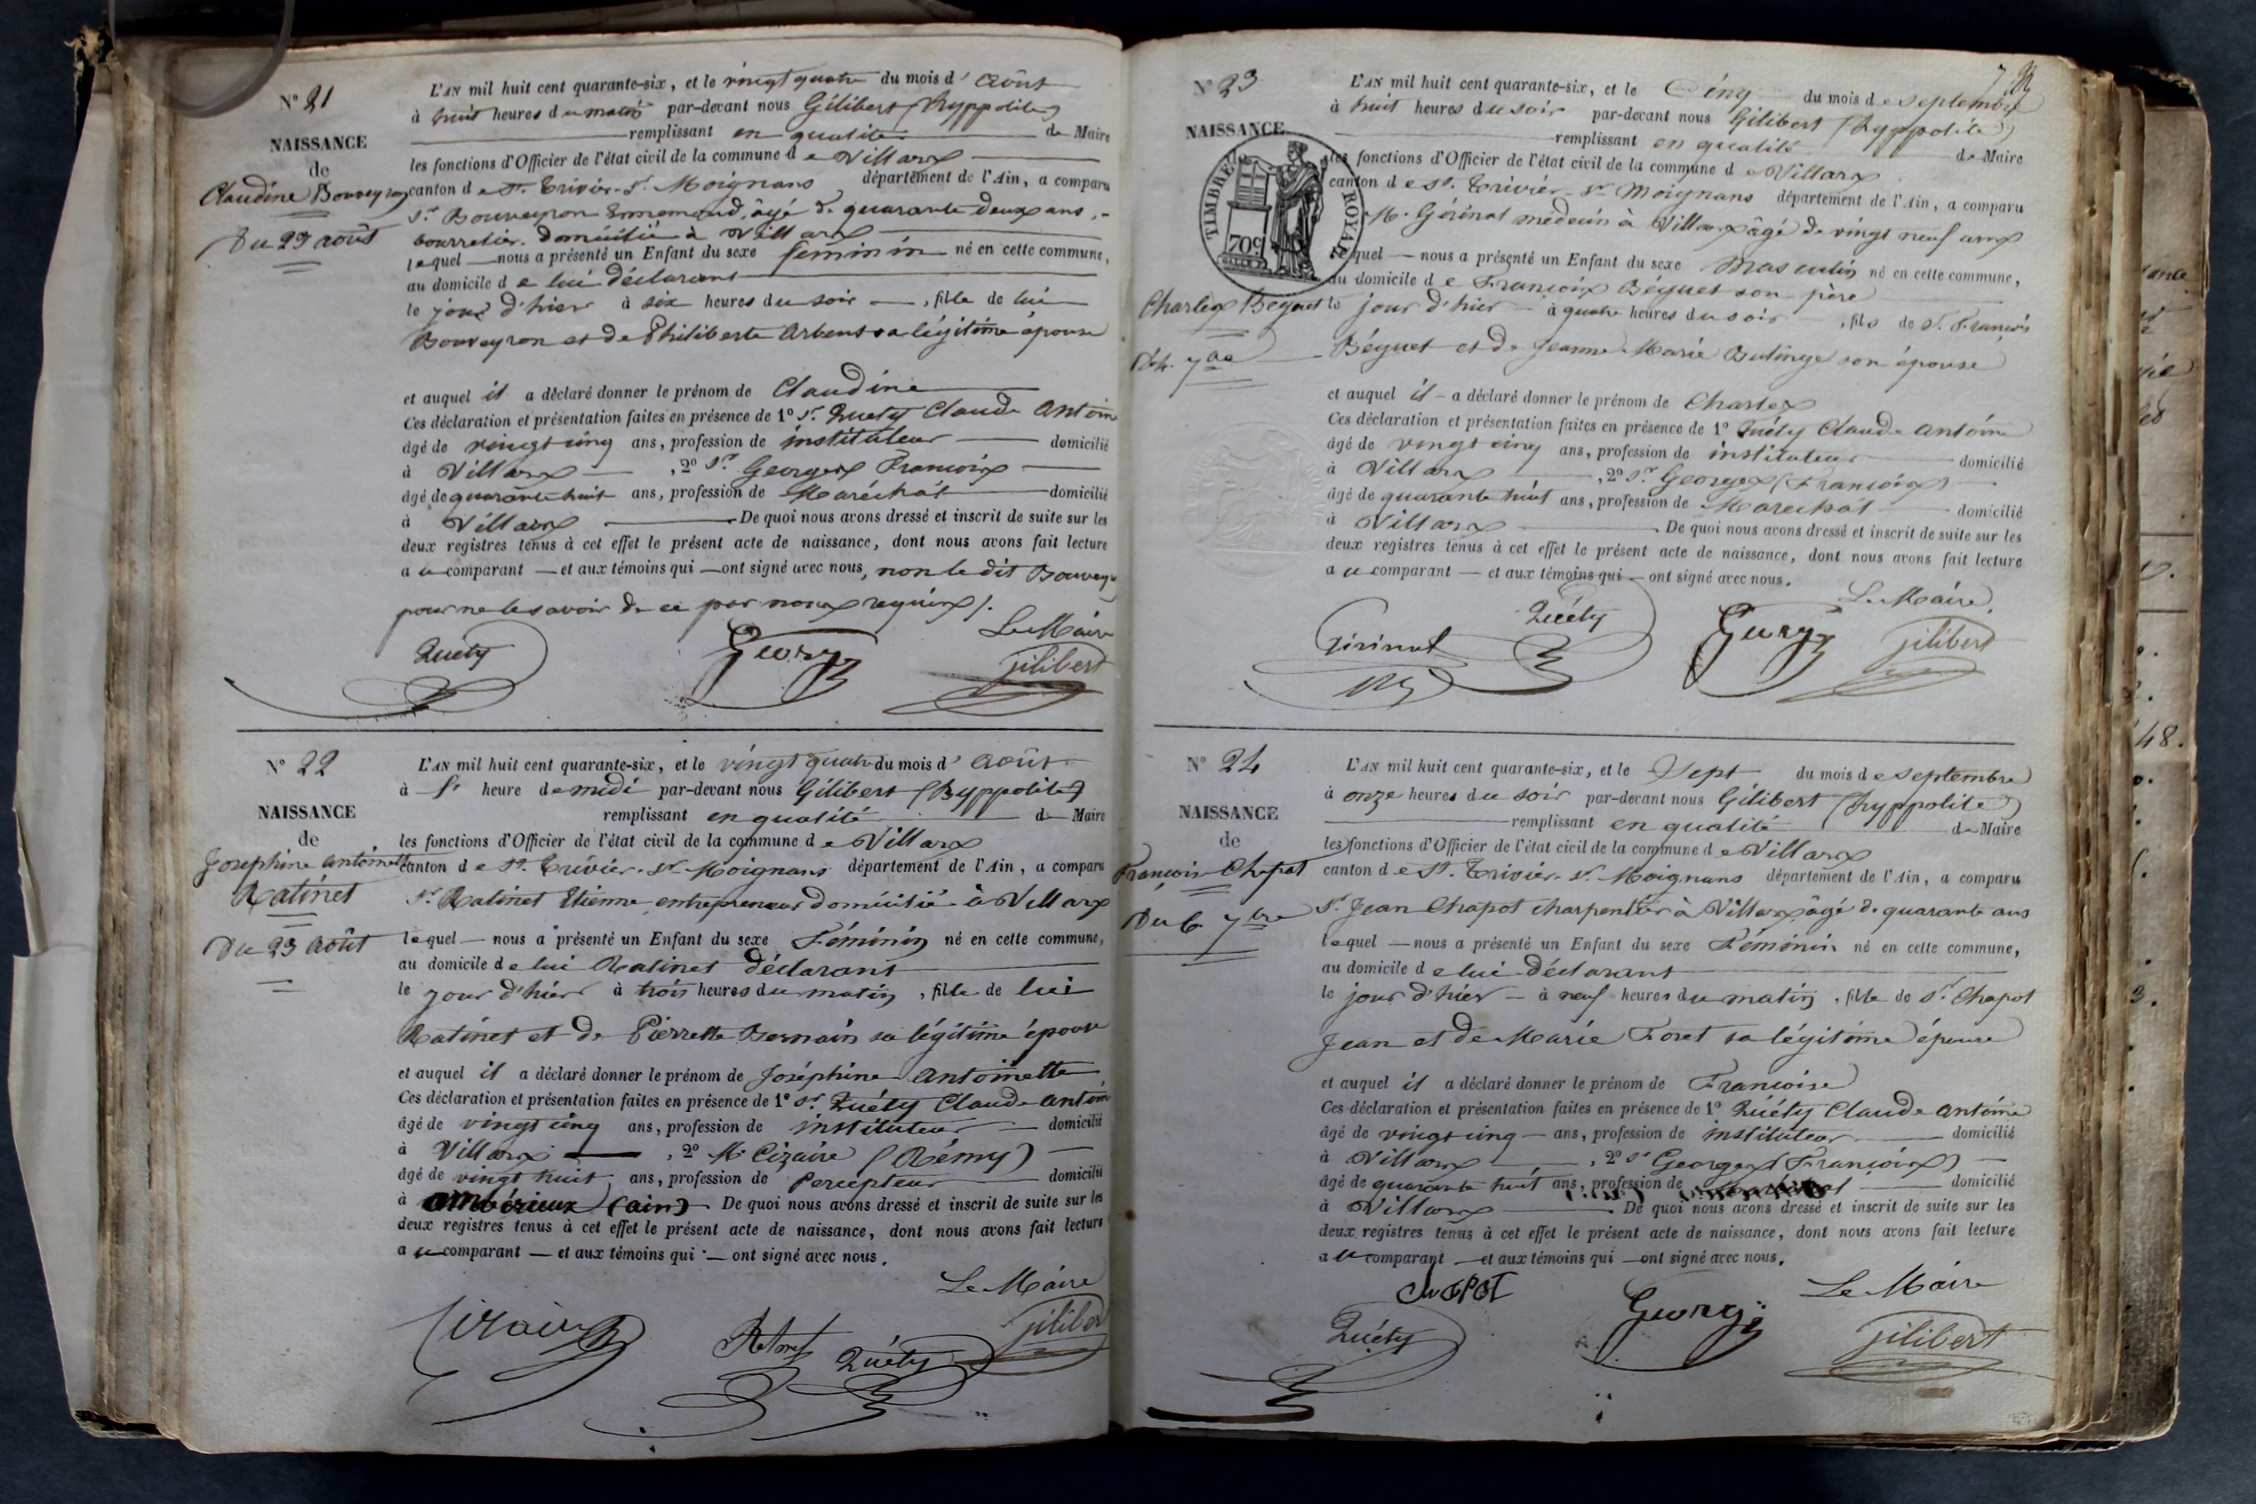 N° 21
NAISSANCE
de
Claudine Bouveyron
Du 23 août
L'AN mil huit cent quarante-six, et le vingt quatre du mois d' Août
à huit heures du matin par-devant nous Gilibert (hyppolite)
remplissant en qualité de Maire
les fonctions d'Officier de l'état civil de la commune de Villars
canton de St. Trivier-sr. Moignans département de l'Ain, a comparu
Sr. Bouveyron Ennemond, âgé de quarante deux ans,
bourrelier domicilié à Villars
lequel nous a présenté un Enfant du sexe feminin né en cette commune,
au domicile de lui déclarant
le jour d'hier à six heures du soir, fille de lui
Bouveyron et de Philiberte Arbent sa légitime épouse
et auquel il a déclaré donner le prénom de Claudine
Ces déclaration et présentation faites en présence de 1° Sr. Quéty Claude Antoine
âgé de vingt cinq ans, profession de instituteur domicilié
à Villars, 2° Sr. Georges François
âgé de quarante huit ans, profession de Maréchal domicilié
à Villars De quoi nous avons dressé et inscrit de suite sur les
deux registres tenus à cet effet le présent acte de naissance, dont nous avons fait lecture
au comparant et aux témoins qui ont signé avec nous, non le dit Bouveyron
pour ne le savoir de ce par nous requis.
Le Maire
Quéty Georges Gilibert
N° 22
NAISSANCE
de
Joséphine Antoinette
Ratinet
Du 23 Août
L'AN mil huit cent quarante-six, et le vingt quatre du mois d' Août
à heure de midi par-devant nous Gilibert (hyppolite)
remplissant en qualité de Maire
les fonctions d'Officier de l'état civil de la commune de Villars
canton de St. Trivier-sr. Moignans département de l'Ain, a comparu
Sr. Ratinet Etienne entrepreneur domicilié à Villars
lequel nous a présenté un Enfant du sexe Féminin né en cette commune,
au domicile de lui Ratinet déclarant
le jour d'hier à trois heures du matin, fille de lui
Ratinet et de Pierrette sa légitime épouse
et auquel il a déclaré donner le prénom de Joséphine Antoinette
Ces déclaration et présentation faites en présence de 1° Sr. Quéty Claude Antoine
âgé de vingt cinq ans, profession de instituteur domicilié
à Villars, 2° Mr Cizaire (Rémy)
âgé de vingt huit ans, profession de Percepteur domicilié
à ambérieux (ain) De quoi nous avons dressé et inscrit de suite sur les
deux registres tenus à cet effet le présent acte de naissance, dont nous avons fait lecture
au comparant et aux témoins qui ont signé avec nous.
Le Maire
Cizaire Ratinet Quéty Gilibert
N° 23
NAISSANCE
TIMBRE ROYAL
70c
Charles Béguet
L'AN mil huit cent quarante-six, et le Cinq du mois de septembre
à huit heures du soir par-devant nous Gilibert (hyppolite)
remplissant en qualité de Maire
les fonctions d'Officier de l'état civil de la commune de Villars
canton de St. Trivier-sr. Moignans département de l'Ain, a comparu
M. Gérinat médecin à Villars âgé de vingt neuf ans
lequel nous a présenté un Enfant du sexe Masculin né en cette commune,
au domicile de François Béguet son père
le jour d'hier à quatre heures du soir, fils de Sr. François
Béguet et de Jeanne Marie Bulinge son épouse
et auquel il a déclaré donner le prénom de Charles
Ces déclaration et présentation faites en présence de 1° Quéty Claude Antoine
âgé de vingt cinq ans, profession de instituteur domicilié
à Villars, 2° Sr. Georges (François)
âgé de quarante huit ans, profession de Maréchal domicilié
à Villars De quoi nous avons dressé et inscrit de suite sur les
deux registres tenus à cet effet le présent acte de naissance, dont nous avons fait lecture
au comparant et aux témoins qui ont signé avec nous.
Le Maire
Quéty Georges Gilibert
N° 24
NAISSANCE
de
Françoise Chapot
Du 6 7bre
L'AN mil huit cent quarante-six, et le Sept du mois de septembre
à onze heures du soir par-devant nous Gilibert (hyppolite)
remplissant en qualité de Maire
les fonctions d'Officier de l'état civil de la commune de Villars
canton de St. Trivier-sr. Moignans département de l'Ain, a comparu
Sr. Jean Chapot charpentier à Villars âgé de quarante ans
lequel nous a présenté un Enfant du sexe Féminin né en cette commune,
au domicile de lui déclarant
le jour d'hier à neuf heures du matin, fille de Sr. Chapot
Jean et de Marie Foret sa légitime épouse
et auquel il a déclaré donner le prénom de Francoise
Ces déclaration et présentation faites en présence de 1° Quéty Claude Antoine
âgé de vingt cinq ans, profession de instituteur domicilié
à Villars, 2° Sr Georges (François)
âgé de quarante huit ans, profession de domicilié
à Villars De quoi nous avons dressé et inscrit de suite sur les
deux registres tenus à cet effet le présent acte de naissance, dont nous avons fait lecture
au comparant et aux témoins qui ont signé avec nous.
CHAPOT Le Maire
Quéty Georges Gilibert
48.